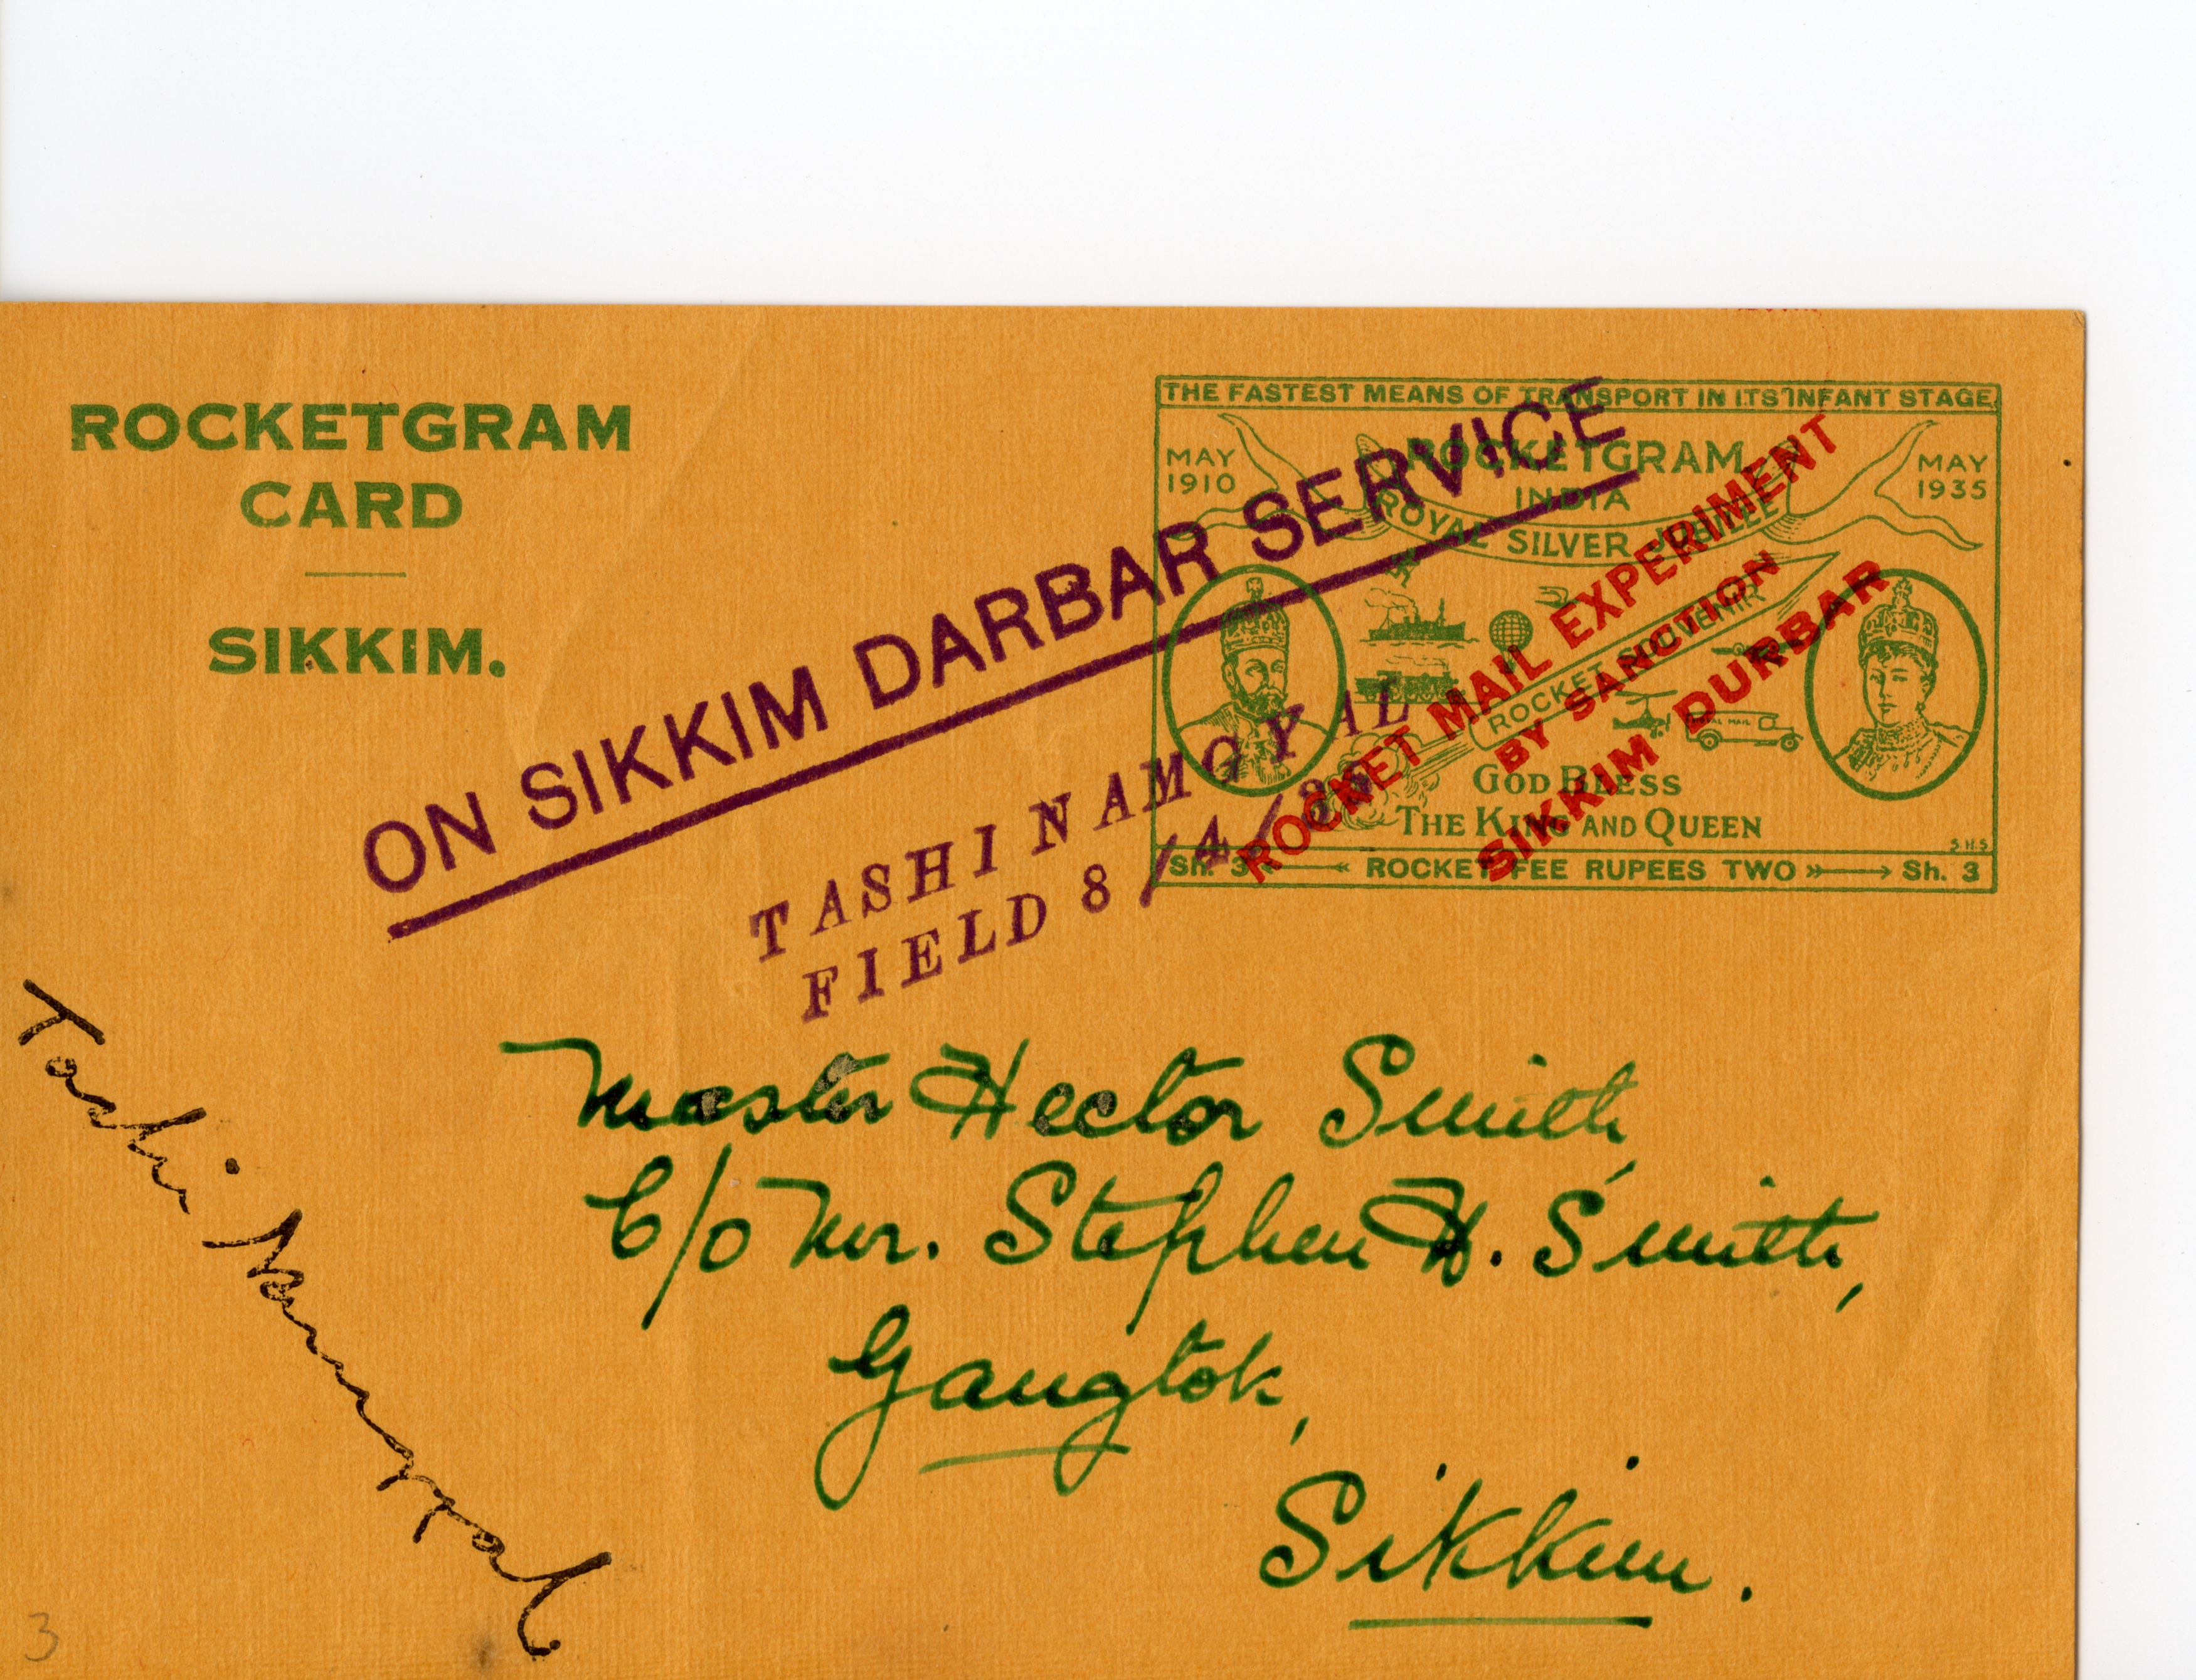 ROCKETGRAM
CARD
SIKKIM.
THE FASTEST MEANS OF TRANSPORT IN ITS INFANT STAGE
MAY
1910
ROCKETGRAM
INDIA
MAY
1935
ROYAL SILVER JUBILEE
ROCKET SOUVENIR
ROYAL MAIL
GOD BLESS
THE KING AND QUEEN
S.H.S
Sh. 3 ROCKET FEE RUPEES TWO Sh. 3
ROCKET MAIL EXPERIMENT
BY SANCTION
SIKKIM DURBAR
ON SIKKIM DARBAR SERVICE
TASHI NAMGYAL
FIELD 8/4/35
Tashi Namgyal
Master Hector Smith,
C/o Mr. Stephen H. Smith,
Gangtok,
Sikkim.
3